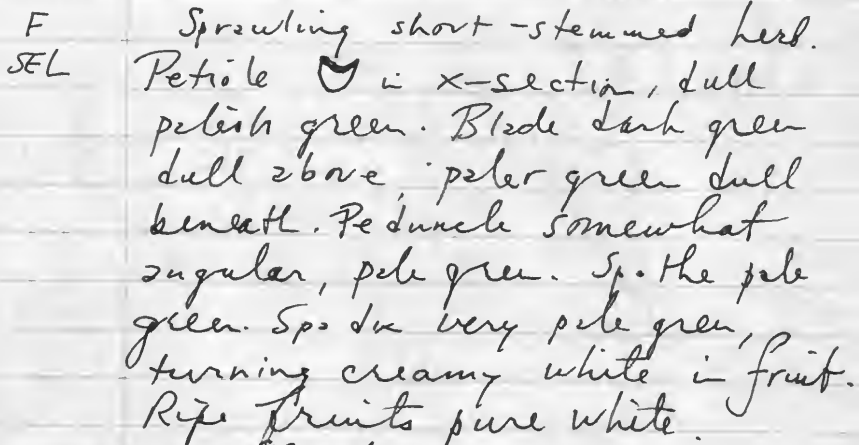 F Sprawling short-stemmed herb.
SEL Petiole in x-section, dull
palish green. Blade dark green
dull above, paler green dull
beneath. Peduncle somewhat
angular, pale green. Spathe pale
green. Spadix very pale green,
turning creamy white in fruit.
Ripe fruits pure white.